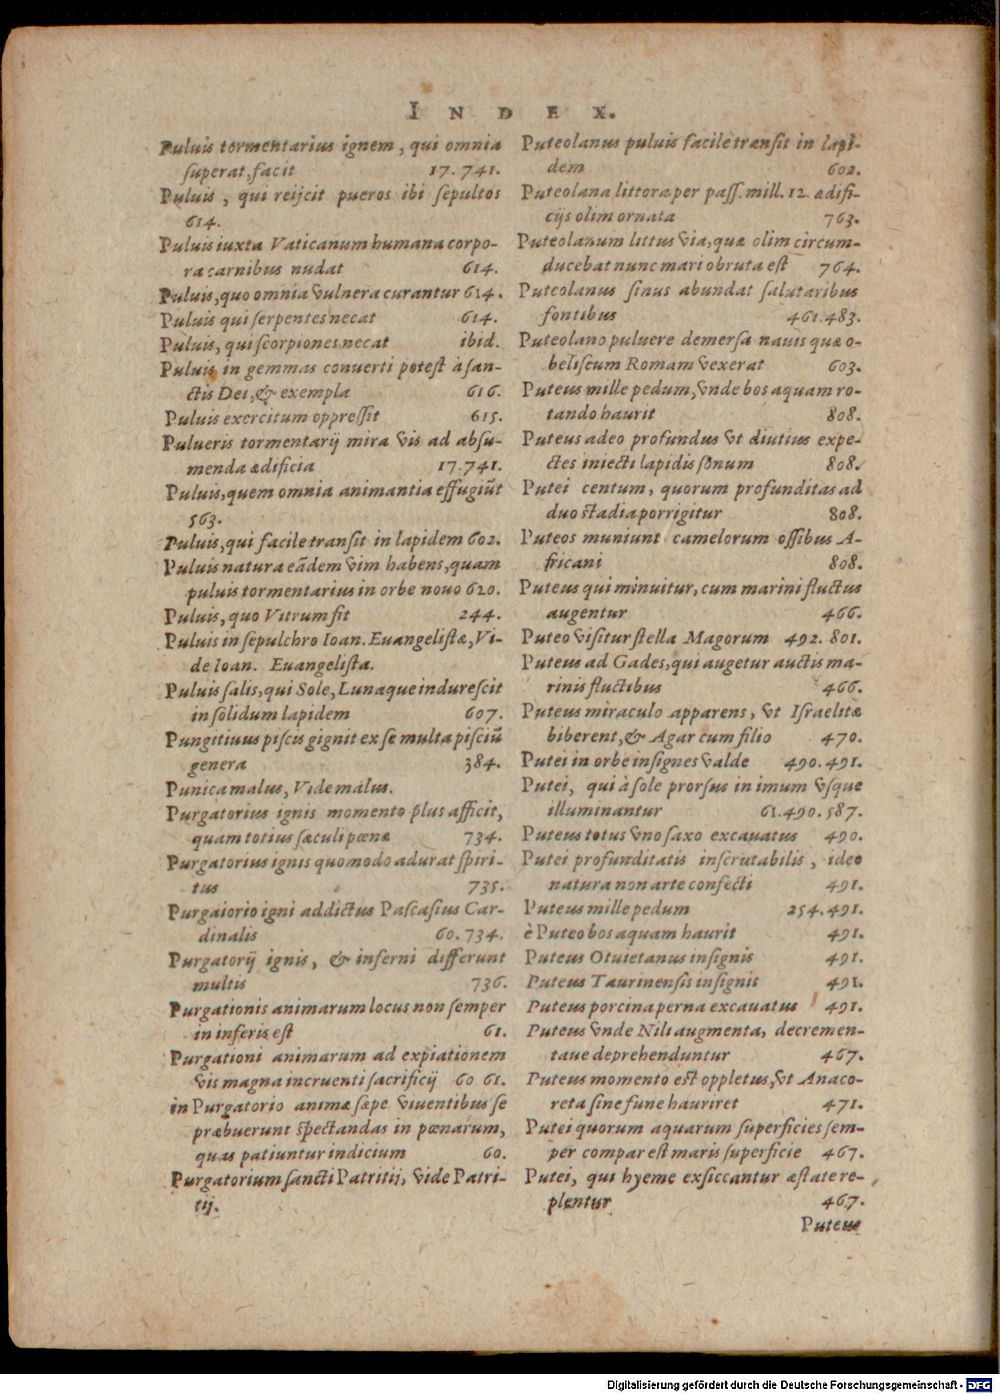 INDEX.
Puluis tormentarius ignem, qui omnia
superat, facit 17. 741.
Puluis, qui reijcit pueros ibi sepultos
614.
Puluis iuxta Vaticanum humana corpo-
ra carnibus nudat 614.
Puluis, quo omnia vulnera curantur 614.
Puluis qui serpentes necat 614.
Puluis, qui scorpiones necat ibid.
Puluis in gemmas conuerti potest à san-
ctis Dei, & exempla 616.
Puluis exercitum oppressit 615.
Pulueris tormentarij mira vis ad absu-
menda ædificia 17. 741.
Puluis, quem omnia animantia effugiũt
563.
Puluis, qui facile transit in lapidem 602.
Puluis natura eãdem vim habens, quam
puluis tormentarius in orbe nouo 620.
Puluis, quo Vitrum fit 244.
Puluis in sepulchro Ioan. Euangelistæ, Vi-
de Ioan. Euangelista.
Puluis salis, qui Sole, Lunaque indurescit
in solidum lapidem 607.
Pungitiuus piscis gignit ex se multa pisciũ
genera 384.
Punica malus, Vide malus.
Purgatorius ignis momento plus afficit,
quam totius sæculi pœna 734.
Purgatorius ignis quomodo adurat spiri-
tus 735.
Purgaiorio igni addictus Pascasius Car-
dinalis 60. 734.
Purgatorij ignis, & inferni differunt
multis 736.
Purgationis animarum locus non semper
in inferis est 61.
Purgationi animarum ad expiationem
vis magna incruenti sacrificij 60 61.
in Purgatorio animæ sæpe viuentibus se
præbuerunt spectandas in pœnarum,
quas patiuntur indicium 60.
Purgatorium sancti Patritij, vide Patri-
tij.
Puteolanus puluis facile transit in lapi-
dem 602.
Puteolana littora per pass. mill. 12. ædifi-
cijs olim ornata 763.
Puteolanum littus via, quæ olim circum-
ducebat nunc mari obruta est 764.
Puteolanus sinus abundat salutaribus
fontibus 461. 483.
Puteolano puluere demersa nauis quæ o-
beliscum Romam vexerat 603.
Puteus mille pedum, vnde bos aquam ro-
tando haurit 808.
Puteus adeo profundus vt diutius expe-
ctes iniecti lapidis sonum 808.
Putei centum, quorum profunditas ad
duo stadia porrigitur 808.
Puteos muniunt camelorum ossibus A-
fricani 808.
Puteus qui minuitur, cum marini fluctus
augentur 466.
Puteo visitur stella Magorum 492. 801.
Puteus ad Gades, qui augetur auctis ma-
rinis fluctibus 466.
Puteus miraculo apparens, vt Israelitæ
biberent, & Agar cum filio 470.
Putei in orbe insignes valde 490. 491.
Putei, qui à sole prorsus in imum vsque
illuminantur 61. 490. 587.
Puteus totus vno saxo excauatus 490.
Putei profunditatis inscrutabilis, ideo
natura non arte confecti 491.
Puteus mille pedum 254. 491.
è Puteo bos aquam haurit 491.
Puteus Otuietanus insignis 491.
Puteus Taurinensis insignis 491.
Puteus porcina perna excauatus 491.
Puteus vnde Nili augmenta, decremen-
taue deprehenduntur 467.
Puteus momento est oppletus, vt Anaco-
reta sine fune hauriret 471.
Putei quorum aquarum superficies sem-
per compar est maris superficie 467.
Putei, qui hyeme exsiccantur æstate re-
plentur 467.
Puteus
Digitalisierung gefördert durch die Deutsche Forschungsgemeinschaft - DFG